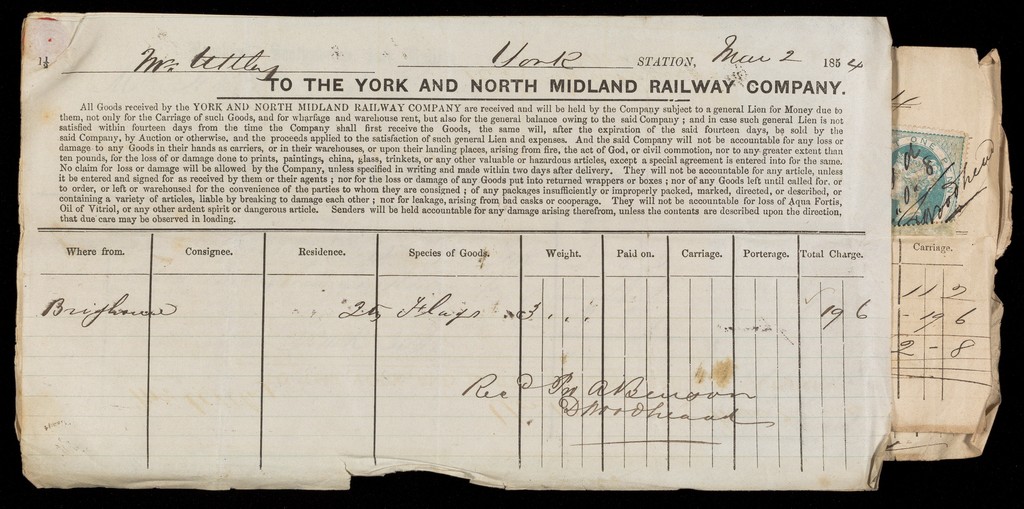 1½
Mr. Uttley York STATION, Mar 2 1854
TO THE YORK AND NORTH MIDLAND RAILWAY COMPANY.
All Goods received by the YORK AND NORTH MIDLAND RAILWAY COMPANY are received and will be held by the Company subject to a general Lien for Money due to
them, not only for the Carriage of such Goods, and for wharfage and warehouse rent, but also for the general balance owing to the said Company ; and in case such general Lien is not
satisfied within fourteen days from the time the Company shall first receive the Goods, the same will, after the expiration of the said fourteen days, be sold by the
said Company, by Auction or otherwise, and the proceeds applied to the satisfaction of such general Lien and expenses. And the said Company will not be accountable for any loss or
damage to any Goods in their hands as carriers, or in their warehouses, or upon their landing places, arising from fire, the act of God, or civil commotion, nor to any greater extent than
ten pounds, for the loss of or damage done to prints, paintings, china, glass, trinkets, or any other valuable or hazardous articles, except a special agreement is entered into for the same.
No claim for loss or damage will be allowed by the Company, unless specified in writing and made within two days after delivery. They will not be accountable for any article, unless
it be entered and signed for as received by them or their agents ; nor for the loss or damage of any Goods put into returned wrappers or boxes ; nor of any Goods left until called for, or
to order, or left or warehoused for the convenience of the parties to whom they are consigned ; of any packages insufficiently or improperly packed, marked, directed, or described, or
containing a variety of articles, liable by breaking to damage each other ; nor for leakage, arising from bad casks or cooperage. They will not be accountable for loss of Aqua Fortis,
Oil of Vitriol, or any other ardent spirit or dangerous article. Senders will be held accountable for any damage arising therefrom, unless the contents are described upon the direction,
that due care may be observed in loading.
Where from. Consignee. Residence. Species of Goods. Weight. Paid on. Carriage. Porterage. Total Charge.
Brighouse Flags 3 . . . 19 6
Recd Pr A Benson
D Woodhead
Carriage.
11 2
- 19 6
2 - 8